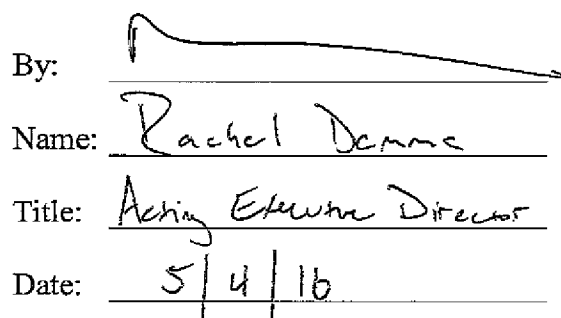 By:
Name: Rachel Demme
Title: Acting Executive Director
Date: 5/4/16